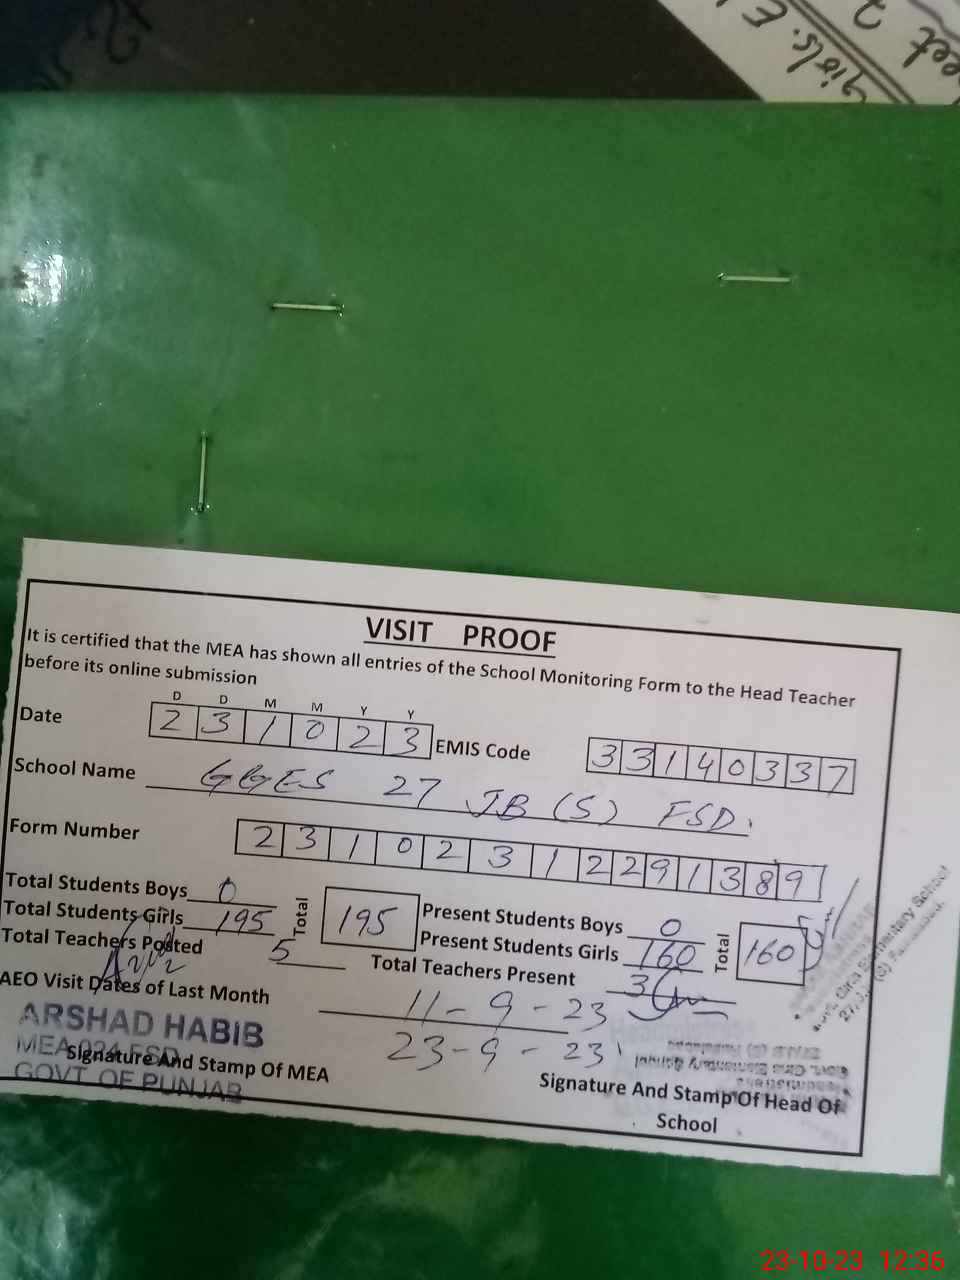 girls. E
eet 2
VISIT PROOF
It is certified that the MEA has shown all entries of the School Monitoring Form to the Head Teacher
before its online submission
D D M M Y Y
Date 2 3 1 0 2 3 EMIS Code 3 3 1 4 0 3 3 7
School Name GGES 27 JB (S) FSD.
Form Number 2 3 1 0 2 3 1 2 2 9 1 3 8 9
Total Students Boys 0 Present Students Boys 0
Total Students Girls 195 Total 195 Present Students Girls 160 Total 160
Total Teachers Posted 5 Total Teachers Present 3
AEO Visit Dates of Last Month 11-9-23
23-9-23
ARSHAD HABIB
MEA 024 FSD
GOVT. OF PUNJAB
Signature And Stamp Of MEA
Signature And Stamp Of Head Of
School
Govt. Girls Elementary School
23-10-23 12:36